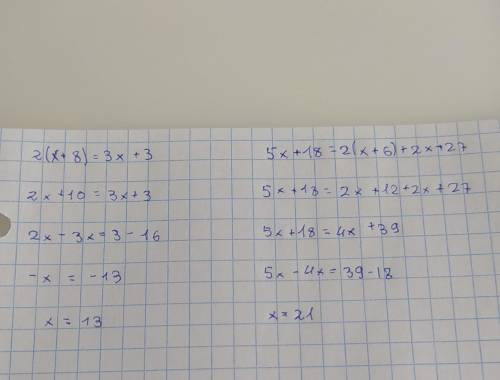 2(x+8) = 3x + 3
2x + 10 = 3x + 3
2x - 3x = 3 - 16
-x = -13
x = 13
5x + 18 = 2(x + 6) + 2x + 27
5x + 18 = 2x + 12 + 2x + 27
5x + 18 = 4x + 39
5x - 4x = 39 - 18
x = 21